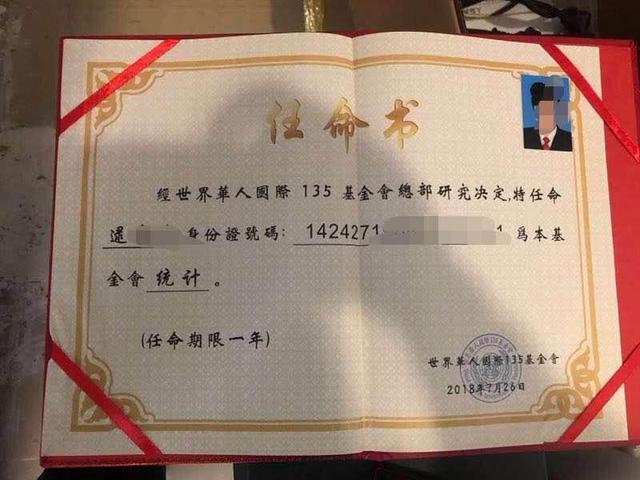 任命书
經世界華人國際135基金會總部研究决定,特任命
身份證號碼: 1424271 1 爲本基
金會 统计 。
(任命期限一年)
世界華人國際135基金會
2018年7月26日